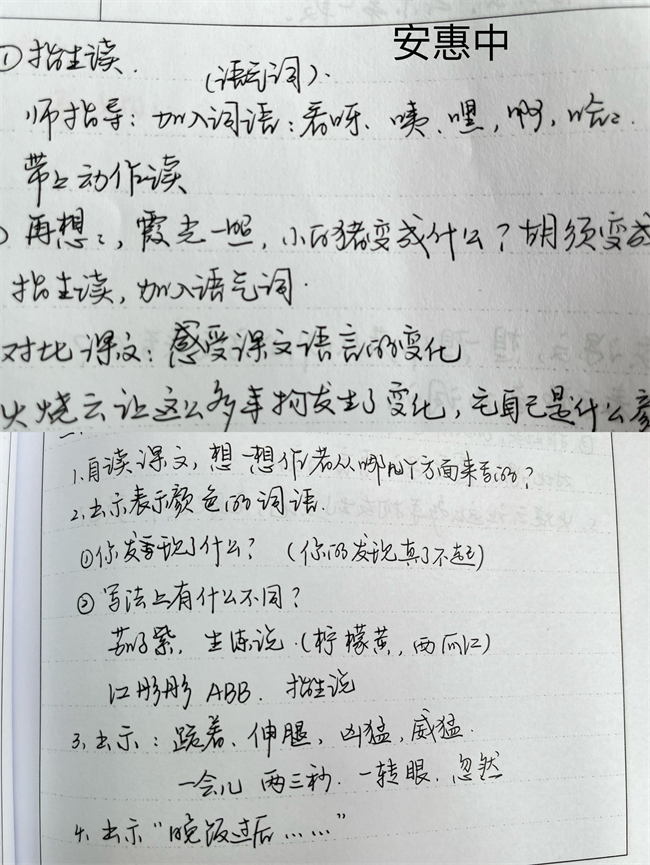 安惠中
①指生读.
(语气词).
师指导：加入词语：看呀、咦、嘿，啊，哈哈.
带上动作读
再想想，霞光一照，小的猪变成什么？胡须变成
指生读，加入语气词.
对比课文：感受课文语言的变化
火烧云让这么多事物发生了变化，它自己是什么
1.自读课文，想一想作者从哪几个方面来写的？
2.出示表示颜色的词语.
①你发现了什么？（你的发现真了不起）
②写法上有什么不同？
茄子紫，生练说.(柠檬黄，西瓜红)
红彤彤 ABB. 指生说
3.出示：跪着、伸腿，凶猛，威猛.
一会儿 两三秒. 一转眼. 忽然
4.出示“晚饭过后……”